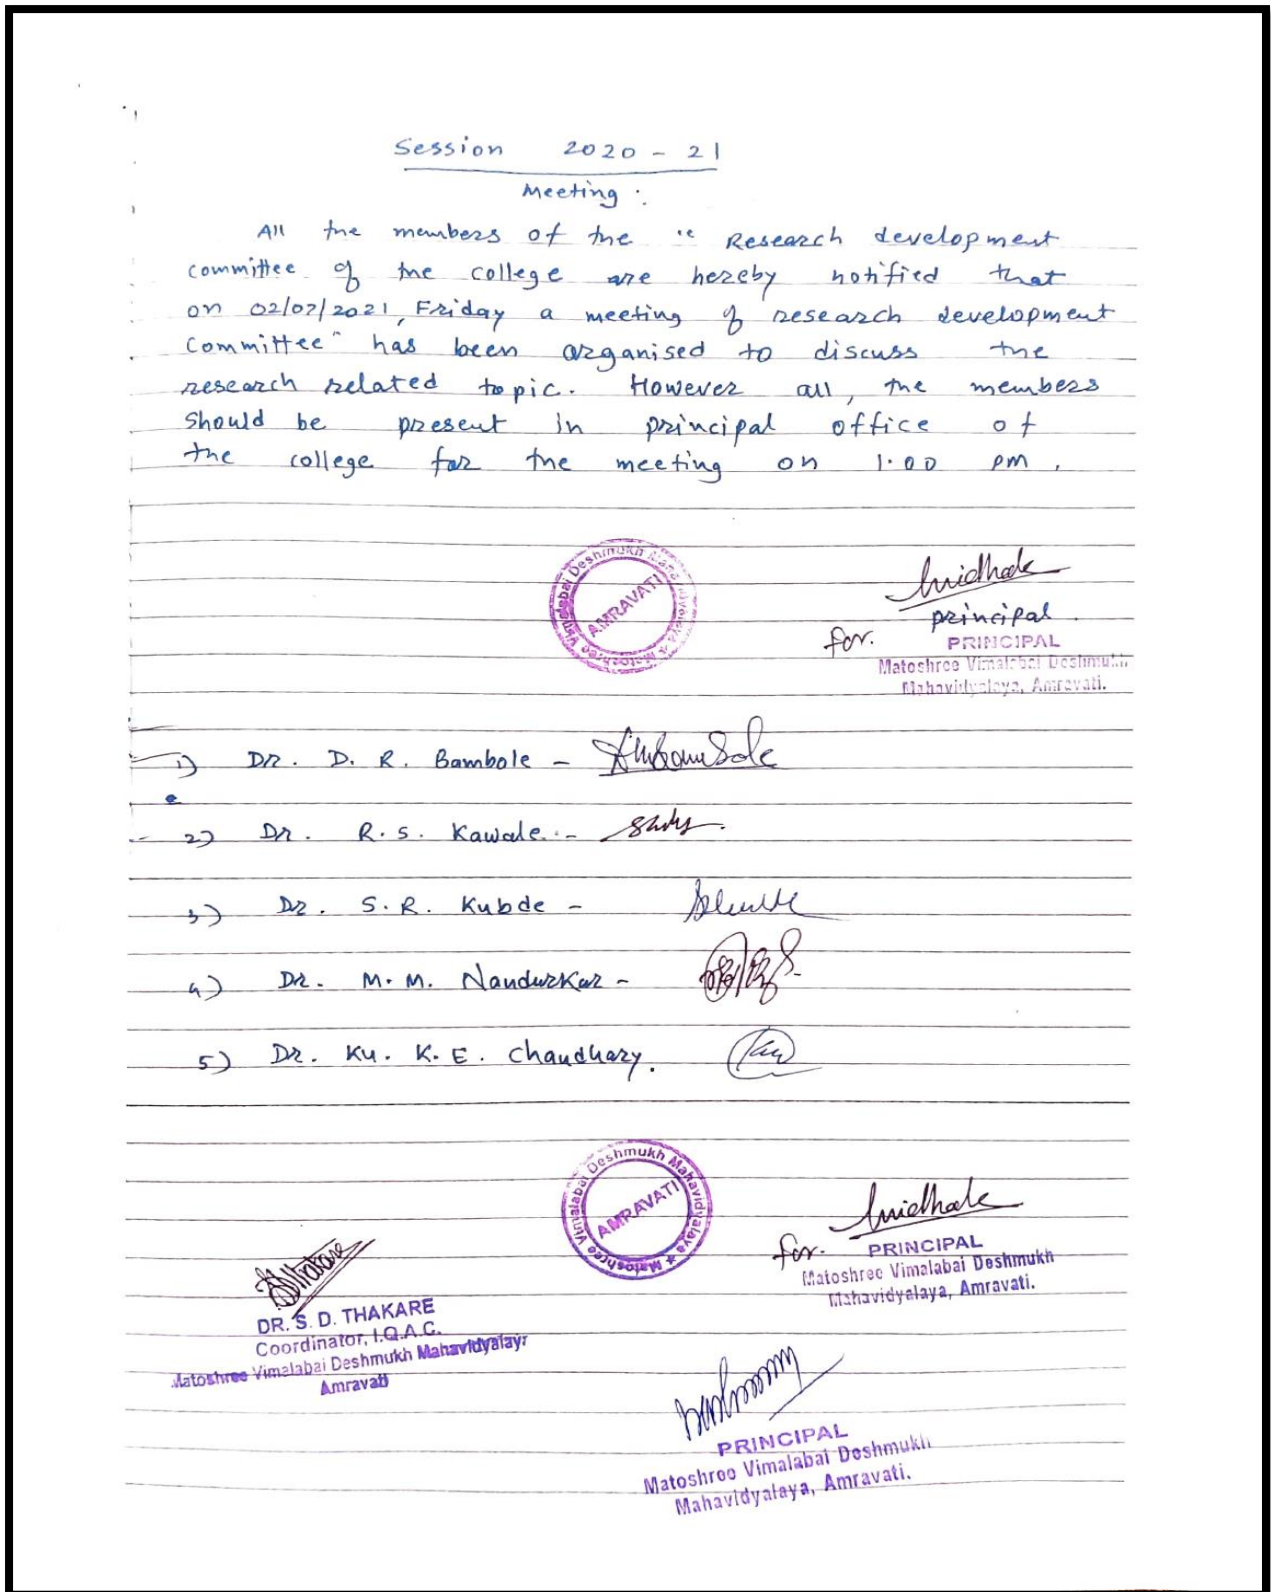 Session 2020 - 21
Meeting :
All the members of the " Research development
committee of the college are hereby notified that
on 02/07/2021, Friday a meeting of research development
Committee" has been organised to discuss the
research related topic. However all, the members
should be present in principal office of
the college for the meeting on 1.00 pm.
Matoshree Vimalabai Deshmukh Mahavidyalaya
AMRAVATI
principal
for.
PRINCIPAL
Matoshree Vimalabai Deshmukh
Mahavidyalaya, Amravati.
1) Dr. D. R. Bambole -
2) Dr. R. S. Kawale. -
3) Dr. S. R. Kubde -
4) Dr. M. M. Nandurkar -
5) Dr. Ku. K. E. Chaudhary.
Matoshree Vimalabai Deshmukh Mahavidyalaya ★
AMRAVATI
for. PRINCIPAL
Matoshree Vimalabai Deshmukh
Mahavidyalaya, Amravati.
DR. S. D. THAKARE
Coordinator, I.Q.A.C.
Matoshree Vimalabai Deshmukh Mahavidyalay
Amravati
PRINCIPAL
Matoshree Vimalabai Deshmukh
Mahavidyalaya, Amravati.